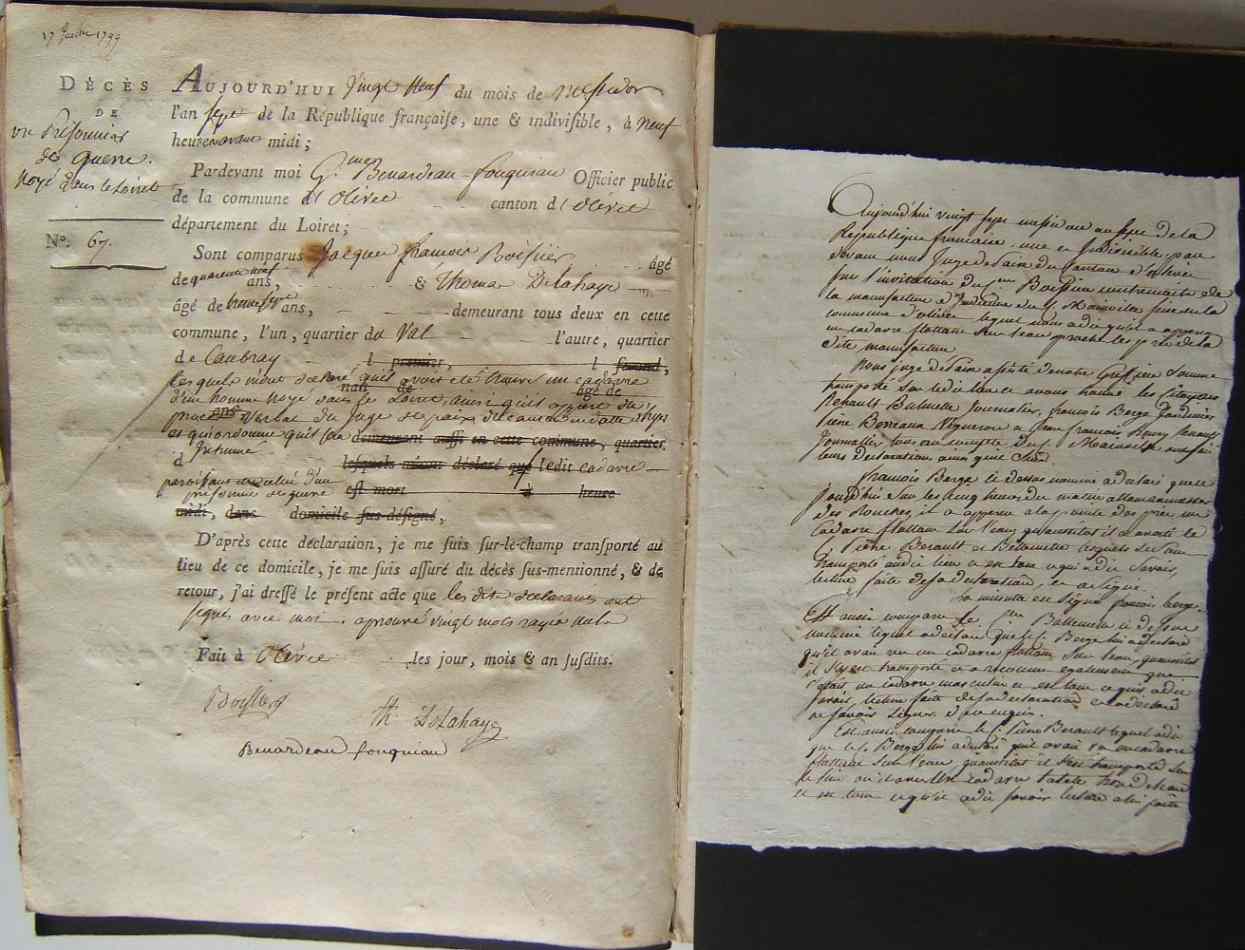 17 Juillet 1799
DÉCÈS
DE
un Prisonnier
de guerre.
Noyé dans le Loiret
N°. 67.
AUJOURD'HUI Vingt Neuf du mois de Messidor
l'an sept de la République françaiſe, une & indiviſible, à neuf
heures avant midi ;
Pardevant moi G.me Benardeau-fouqueau Officier public
de la commune d'Olivet canton d'Olivet
département du Loiret ;
Sont comparus Jacques françois Boissier âgé
de quarante neuf ans, & Thomas Delahaye
âgé de ans, demeurant tous deux en cette
commune, l'un, quartier du Val l'autre, quartier
de Caubray l premier, l ſecond,
lesquels m'ont déclaré qu'il avoit été trouvé un cadavre
nati de âgé de
d'un homme noyé dans le Loiret, ainsi qu'il appert du
procès Verbal du juge de paix du canton
ans
et qui ordonne qu'il sera demeurant auſſi en cette commune, quartier
d inhumé leſquels m'ont déclaré que ledit cadavre
paroissant être celui d'un
prisonnier de guerre eſt mort à heure
midi, dans domicile ſus-déſigné,
D'après cette déclaration, je me ſuis ſur-le-champ tranſporté au
lieu de ce domicile, je me ſuis aſſuré du décès ſus-mentionné, & de
retour, j'ai dreſſé le préſent acte que les dits déclarants ont
signé avec moi. aprouvé vingt mots rayés nuls
Fait à Olivet les jour, mois & an ſuſdits.
Boissier
th Delahaye
Benardeau fouqueau
Aujourd'hui vingt sept messidor an sept de la
République française une et indivisible par
devant nous Juge de Paix du Canton d'olivet
sur l'invitation du C.en Boissier
la manufacture d'Indienne du C. Mainville sise en la
commune d'olivet lequel nous a dit qu'il a apperçu
un cadavre flottant sur l'eau proche les prés de la
dite manufacture
Nous juge de Paix assisté de notre Greffier sommes
transporté sur le dit lieu et avons trouvé les Citoyens
Renault Balmette Journalier, françois Berge Jardinier
Pierre Vigneron et Jean françois
Journallier tous au compte du C. Mainville
leurs déclaration ainsi qu'il suit
françois Berge ci dessus nommé a déclaré que ce
jourd'hui sur les cinq heures du matin allant ramasser
des il a apperçu à la pointe des prés un
Cadavre flottant sur l'eau, qu'aussitot il a averti le
C. Pierre Berault et Balmette lesquels se sont
transporté audit lieu et est tout ce qu'il a dit savoir,
lecture faite de sa déclaration, et a signé
la minute est signé françois berge
Est aussi comparu le C.en Balmette ci dessus
nommé lequel a déclaré que le C. Berge lui a déclaré
qu'il avait vu un cadavre flottant sur l'eau, qu'aussitot
il s'y est transporté et a reconnu également que
c'était un cadavre masculin et est tout ce qu'il a dit
savoir, lecture faite de sa déclaration et a déclaré
ne savoir signer, de ce enquis.
Est aussi comparu le C. Pierre Berault lequel a dit
que le C. Berge lui a déclaré qu'il avait vu un cadavre
flottant sur l'eau, qu'aussitot il s'est transporté sur
le lieu où il a vu un cadavre
et est tout ce qu'il a dit savoir lecture a lui faite